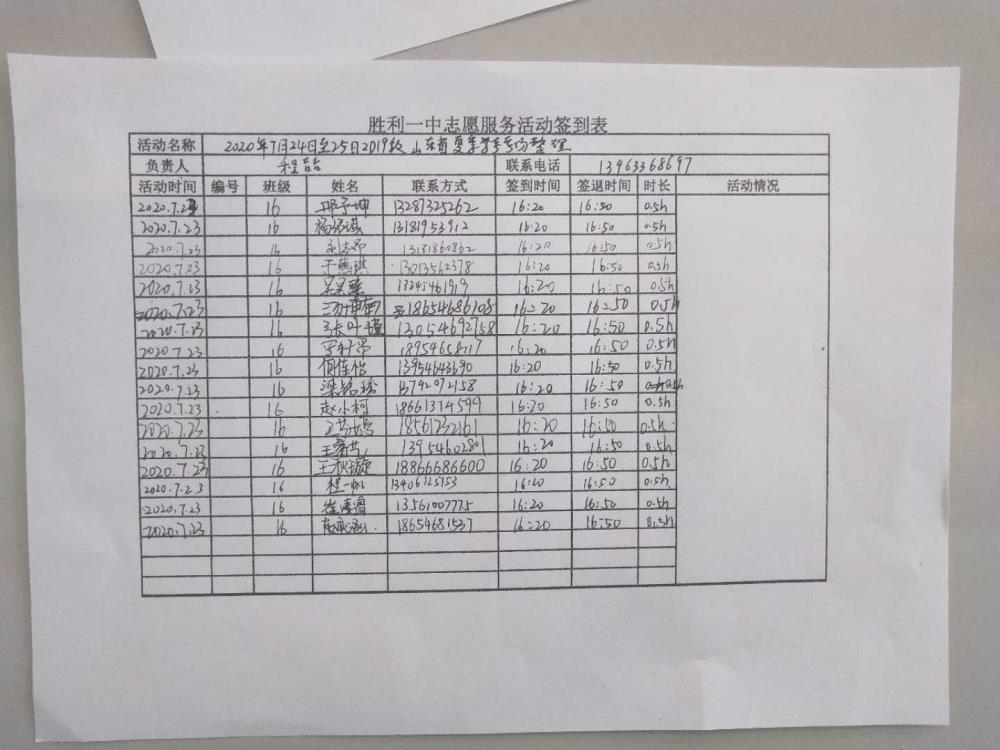 胜利一中志愿服务活动签到表
活动名称 2020年7月24日至25日2019级山东省夏季学考考场整理
负责人 程喆 联系电话 13963368697
活动时间 编号 班级 姓名 联系方式 签到时间 签退时间 时长 活动情况
2020.7.23 16 邢予坤 13287325262 16:20 16:50 0.5h
2020.7.23 16 13181953912 16:20 16:50 0.5h
2020.7.23 16 13181860862 16:20 16:50 0.5h
2020.7.23 16 于燕琪 13013562378 16:20 16:50 0.5h
2020.7.23 16 16:20 16:50 0.5h
2020.7.23 16 18654686108 16:20 16:50 0.5h
2020.7.23 16 张叶瑾 13054692758 16:20 16:50 0.5h
2020.7.23 16 16:20 16:50 0.5h
2020.7.23 16 佰佳怡 13954643690 16:20 16:50 0.5h
2020.7.23 16 13792072158 16:20 16:50 0.5h
2020.7.23 16 赵小柯 18661374599 16:20 16:50 0.5h
2020.7.23 16 18561232161 16:20 16:50 0.5h
2020.7.23 16 13954602801 16:20 16:50 0.5h
2020.7.23 16 王秋璇 18866686600 16:20 16:50 0.5h
2020.7.23 16 程一帆 13406125153 16:20 16:50 0.5h
2020.7.23 16 13561007775 16:20 16:50 0.5h
2020.7.23 16 18654681537 16:20 16:50 0.5h